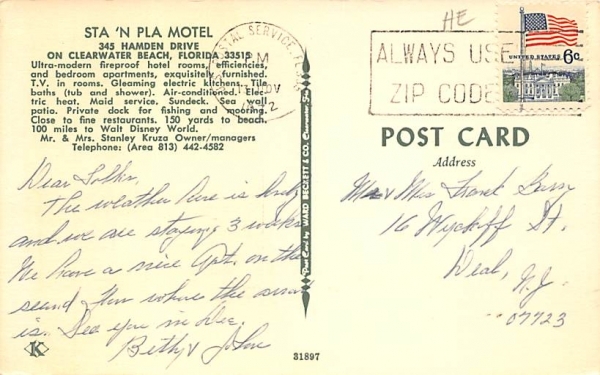 STA 'N PLA MOTEL
345 HAMDEN DRIVE
ON CLEARWATER BEACH, FLORIDA 33515
Ultra-modern fireproof hotel rooms, efficiencies,
and bedroom apartments, exquisitely furnished.
T.V. in rooms. Gleaming electric kitchens. Tile
baths (tub and shower). Air-conditioned. Elec-
tric heat. Maid service. Sundeck. Sea wall
patio. Private dock for fishing and mooring.
Close to fine restaurants. 150 yards to beach.
100 miles to Walt Disney World.
Mr. & Mrs. Stanley Kruza Owner/managers
Telephone: (Area 813) 442-4582
Dear Folks,
The weather here is lovely
and we are staying 3 weeks
We have a nice Apt. on the
second floor where the sun
is. See you in Dec.
Betty & John
K
Post Card by WARD BECKETT & CO. Clearwater, Fla.
31897
HE
POSTAL SERVICE
PM
NOV
ALWAYS USE
ZIP CODE
UNITED STATES 6c
POST CARD
Address
Mr & Mrs Frank
16 Wyckoff St.
Deal,
N.J.
07723